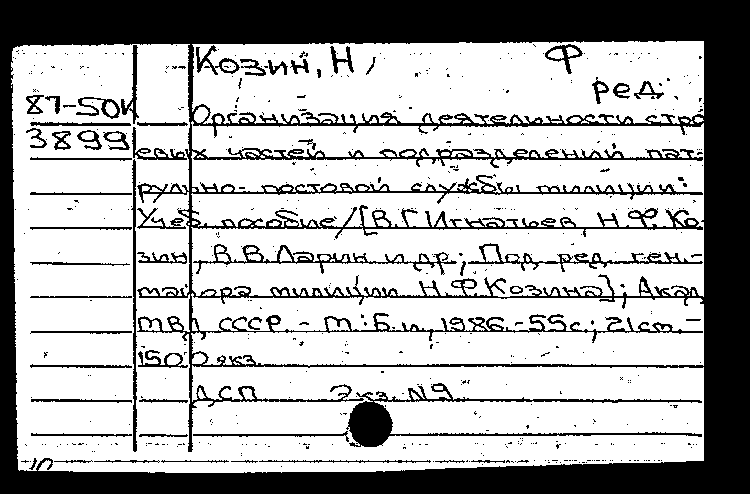 Козин, Н, Ф
ред.
87-50К
Организация деятельности стро
3899
евых частей и подразделений пат-
рульно-постовой службы милиции:
Учеб. пособие/[В.Г.Игнатьев, Н.Ф.Ко
зин, В.В.Ларин и др; Под ред ген.-
майора милиции Н.Ф.Козина]; Акад
МВД СССР. - М.:Б.и, 1986.-55с.; 21см.-
1500экз.
ДСП Экз. N9